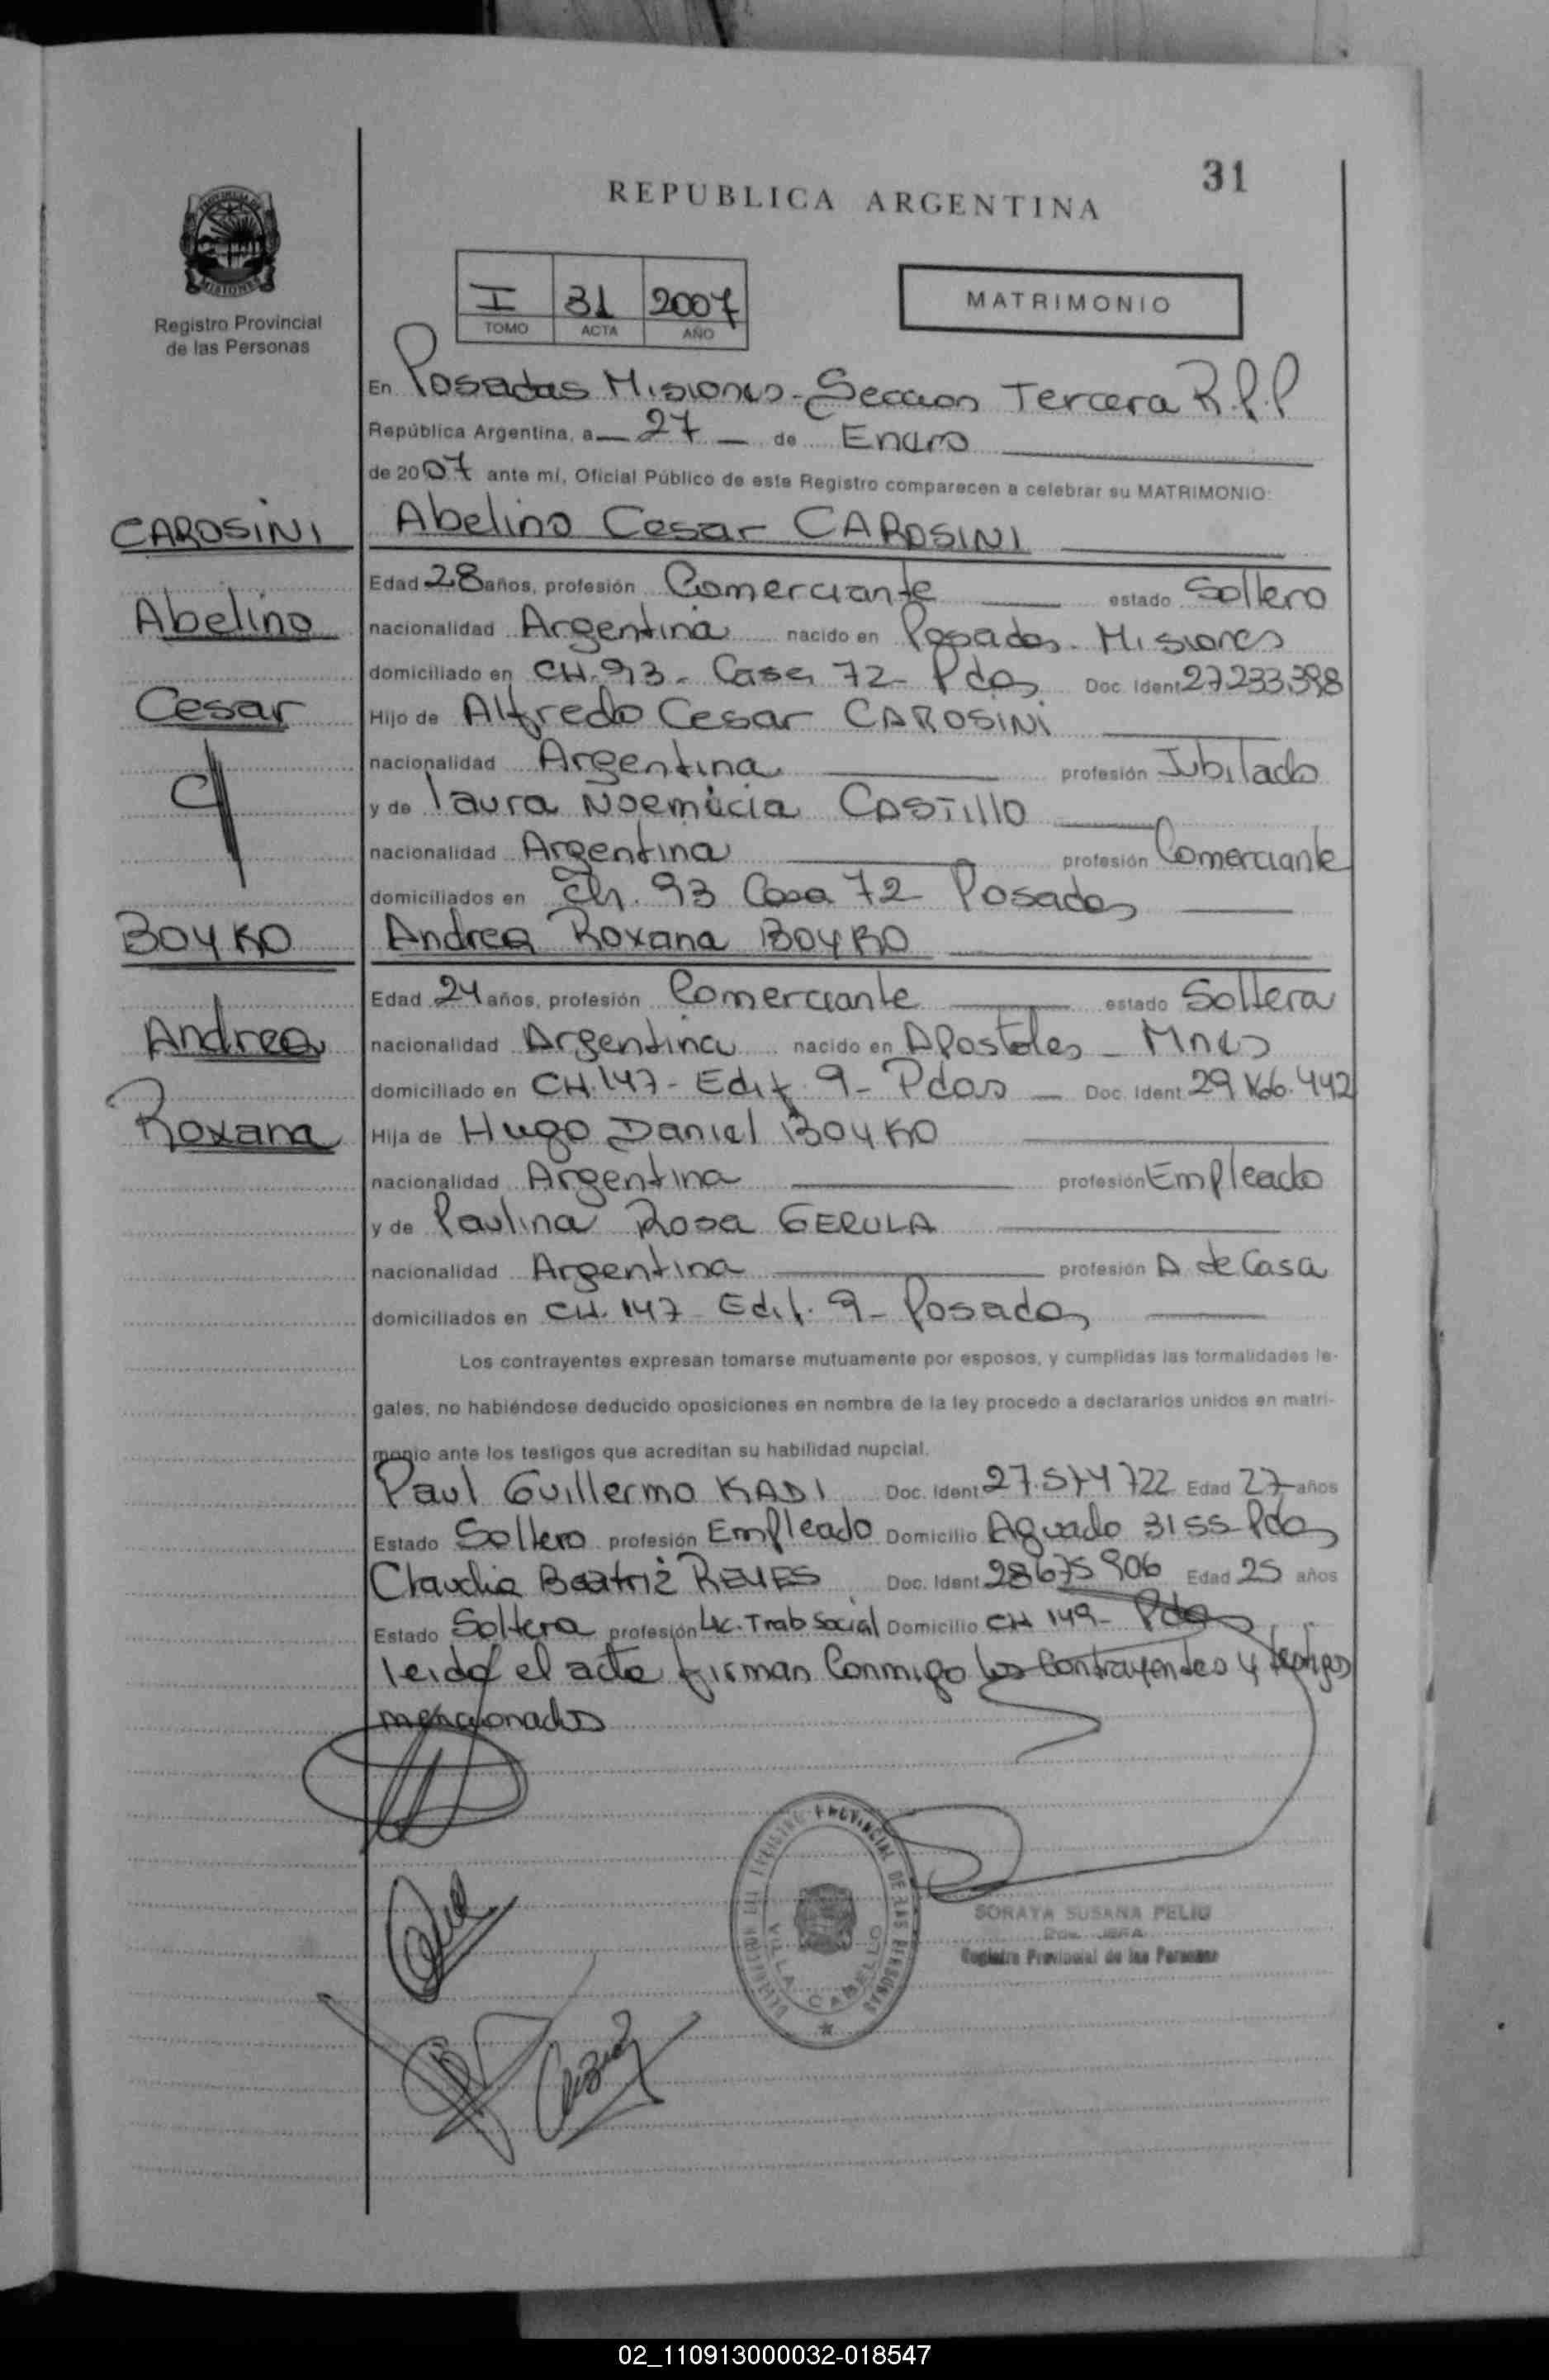 31
REPUBLICA ARGENTINA
PROVINCIA DE
MISIONES
Registro Provincial
de las Personas
I 31 2007
TOMO ACTA AÑO
MATRIMONIO
En Posadas Misiones - Seccion Tercera R.P.P
República Argentina, a 27 de Enero
de 2007 ante mí, Oficial Público de este Registro comparecen a celebrar su MATRIMONIO:
CAROSINI
Abelino Cesar CAROSINI
Edad 28 años, profesión Comerciante estado Soltero
Abelino
nacionalidad Argentina nacido en Posadas - Misiones
domiciliado en CH. 93 - Casa 72 - Pdas Doc. Ident 27.233.398
Cesar
Hijo de Alfredo Cesar CAROSINI
nacionalidad Argentina profesión Jubilado
y de Laura CASTILLO
nacionalidad Argentina profesión Comerciante
domiciliados en Ch. 93 Casa 72 Posadas
BOYKO
Andrea Roxana BOYKO
Edad 24 años, profesión Comerciante estado Soltera
Andrea
nacionalidad Argentina nacido en Apostoles - Mnes
domiciliado en CH. 147 - Edif. 9 - Pdas Doc. Ident 29 442
Roxana
Hija de Hugo Daniel BOYKO
nacionalidad Argentina profesión Empleado
y de Paulina Rosa GERULA
nacionalidad Argentina profesión A. de Casa
domiciliados en CH. 147 Edif. 9 - Posadas
Los contrayentes expresan tomarse mutuamente por esposos, y cumplidas las formalidades le-
gales, no habiéndose deducido oposiciones en nombre de la ley procedo a declararlos unidos en matri-
monio ante los testigos que acreditan su habilidad nupcial.
Paul Guillermo KADI Doc. Ident 27.574 722 Edad 27 años
Estado Soltero profesión Empleado Domicilio Aguado 3155 Pdas
Claudia Beatriz REYES Doc. Ident 28675906 Edad 25 años
Estado Soltera profesión Lic. Trab Social Domicilio CH 149 - Pdas
leida el acta firman Conmigo los Contrayentes y testigos
mencionados
REGISTRO PROVINCIAL DE LAS PERSONAS
VILLA CABELLO
SORAYA SUSANA PELIO
JEFA
Registro Provincial de las Personas
02_110913000032-018547